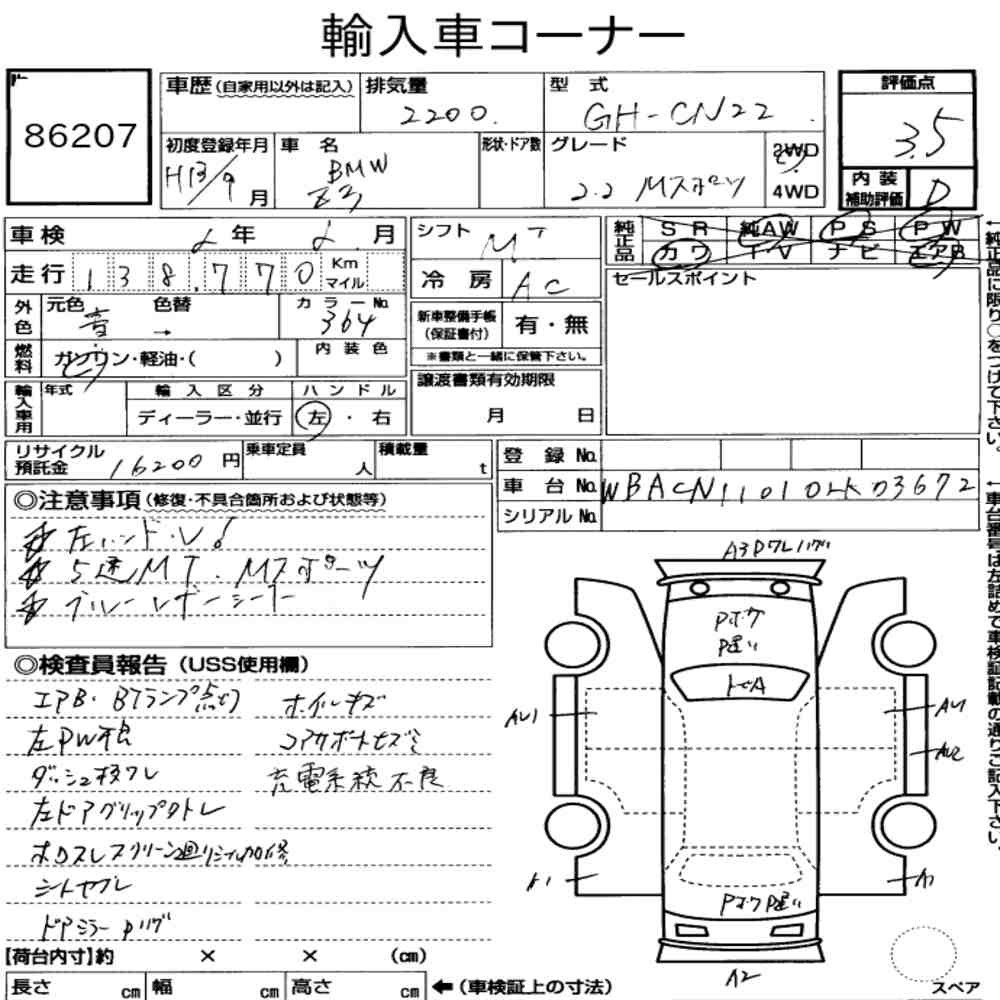 輸入車コーナー
86207
車歴(自家用以外は記入) 排気量 2200. 型式 GH-CN22
評価点 3.5
初度登録年月 H13/9月 車名 BMW Z3 形状・ドア数 グレード 2.2 Mスポーツ 2WD 4WD
内装補助評価 D
車検 年 月
シフト MT
純正品 SR 純AW PS PW
カワ TV ナビ エアB
走行 138,770 Km マイル
冷房 AC
セールスポイント
外色 元色 青 色替 → カラーNo. 364
新車整備手帳(保証書付) 有・無
※書類と一緒に保管下さい。
燃料 ガソリン・軽油・( ) 内装色
譲渡書類有効期限 月 日
輸入車用 年式 輸入区分 ディーラー・並行 ハンドル 左・右
リサイクル預託金 16200円 乗車定員 人 積載量 t
登録No.
車台No. WBACN11010LK03672
シリアルNo.
◎注意事項(修復・不具合箇所および状態等)
左ハンドル!
5速MT. Mスポーツ
ブルーレザーシート
◎検査員報告(USS使用欄)
エアB・BTランプ点灯 ホイルキズ
左PW不良 コアサポートキズミ
ダッシュ枠ワレ 充電系統不良
左ドアグリップクトレ
ホロスレスクリーン廻りシール加修
シートヤブレ
ドアミラーPハゲ
A3PワレハゲG
Pボケ
P遅い
トビA
AU1
AU1
AU2
A1
A1
Pボケ P遅い
A2
スペア
【荷台内寸】約 × × (cm)
長さ cm 幅 cm 高さ cm ←(車検証上の寸法)
←純正品に限り○をつけて下さい。
←車台番号は左詰めで車検証記載の通りご記入下さい。